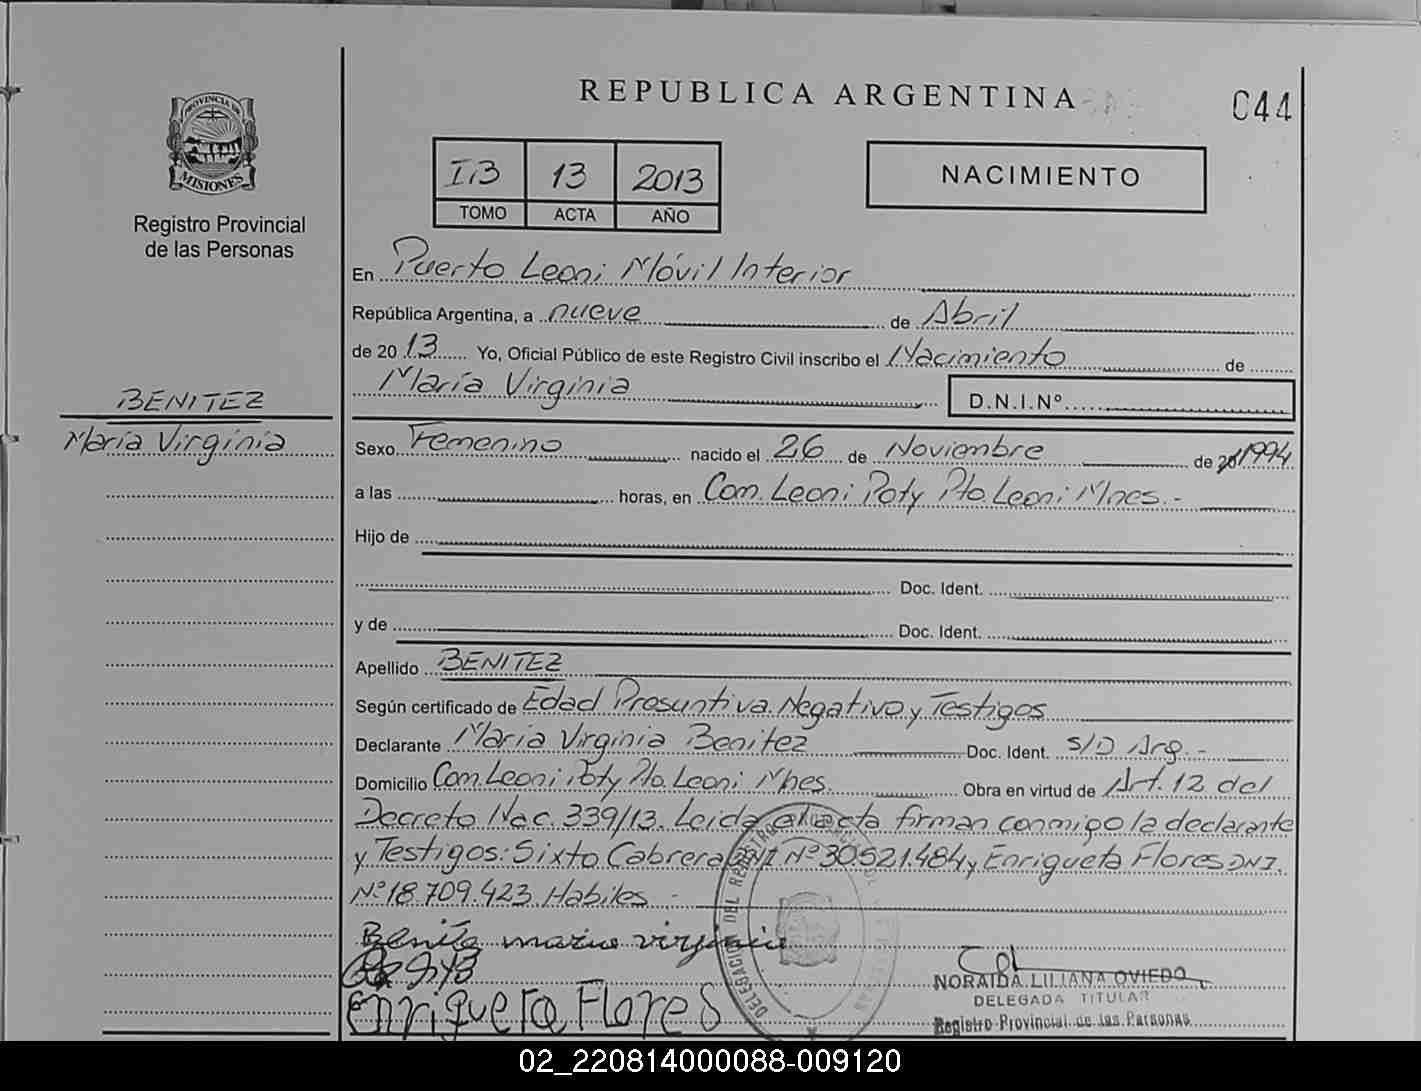 REPUBLICA ARGENTINA
044
PROVINCIA DE
MISIONES
Registro Provincial
de las Personas
I.B 13 2013
TOMO ACTA AÑO
NACIMIENTO
En Puerto Leoni Móvil Interior
República Argentina, a nueve de Abril
de 2013 Yo, Oficial Público de este Registro Civil inscribo el Nacimiento de
María Virginia
D.N.I.Nº
BENITEZ
María Virginia
Sexo Femenino nacido el 26 de Noviembre de 1994
a las horas, en Com. Leoni Poty Pto. Leoni Mnes.-
Hijo de
Doc. Ident.
y de Doc. Ident.
Apellido BENITEZ
Según certificado de Edad Presuntiva. Negativo y Testigos
Declarante María Virginia Benitez Doc. Ident. S/D Arg.-
Domicilio Com. Leoni Poty Pto. Leoni Mnes. Obra en virtud de Art. 12 del
Decreto Nac. 339/13. Leida el acta firman conmigo la declarante
y Testigos: Sixto Cabrera DNI Nº 30.521.484 y Enriqueta Flores DNI.
Nº 18.709.423 Habiles.-
Benite maria virginia
Enriqueta Flores
DELEGACION DEL REGISTRO
NORAIDA LILIANA OVIEDO
DELEGADA TITULAR
Registro Provincial de las Personas
02_220814000088-009120